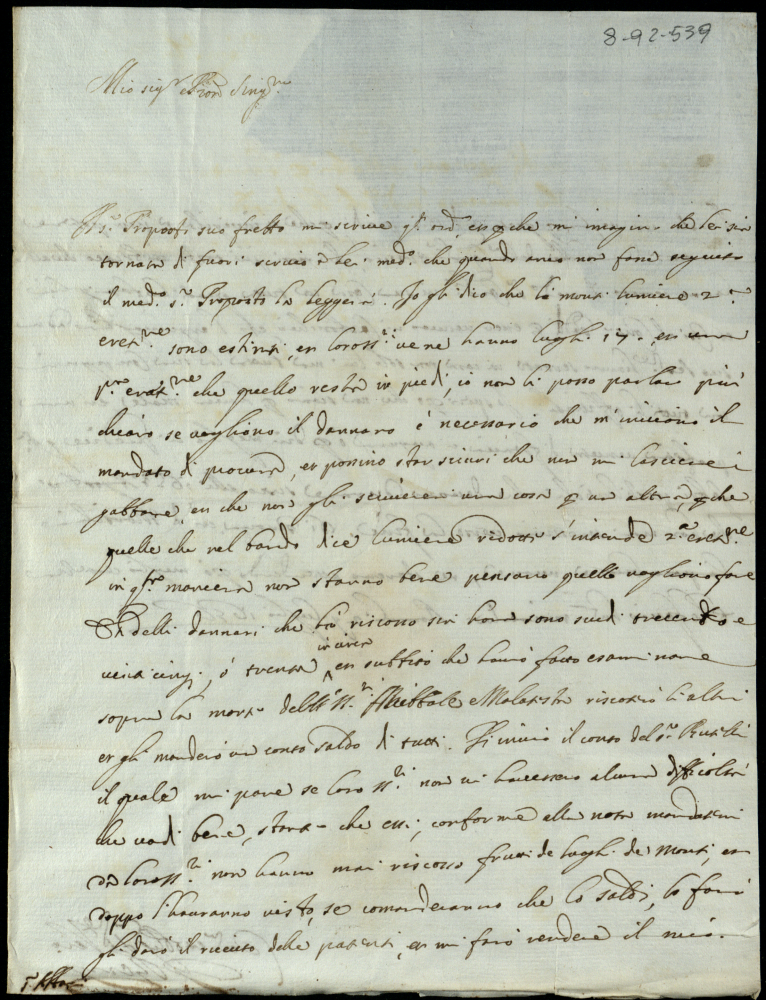 8-92-539
Mio sig.r e Pron Sing.re
Il s.r Proposto suo frello mi scrive che mi imagino che lei sia
tornata di fuori scrivo a lei med.o che quando anco non fosse seguito
il med.o s.r Proposto la leggerà. Io gli dico che li monti lumiere 2.a
eret.ne sono estinti, et loro ss.ri ve ne hanno luoghi 17. et una
p.a eret.ne che quello resta in piedi, io non li posso parlar più
chiaro se vogliono il dannaro è necessario che m'inviino il
mandato di procura, et possino star sicuri che non mi lasciere i
gabbare, et che non gli scriverei una cosa p un altra, p che
quelle che nel bando dice lumiere ridotti s'intende 2.a eret.ne
in q.sta maniera non stanno bene pensano quello vogliono fare
Delli dannari che ho riscosso sin hora sono scudi trecento e
venti cinq; ò trenta in circa et subbito che haverò fatto esaminare
sopra la morte dell Ill. Annibale Malatesta riscoterò li altri
et gli manderò un conto saldo di tutti. Li invio il conto del s.r Rutilii
il quale mi pare se loro ss.ri non vi havessero alcuna difficoltà
che vadi bene, stante che essi, conforme alla nota mandatemi
da loro ss.ri non hanno mai riscosso frutti de luoghi de monti, et
doppo l'hauranno visto, se comanderanno che lo saldi, lo farò
gli darò il riceuto delle patenti, et mi farò rendere il mio.